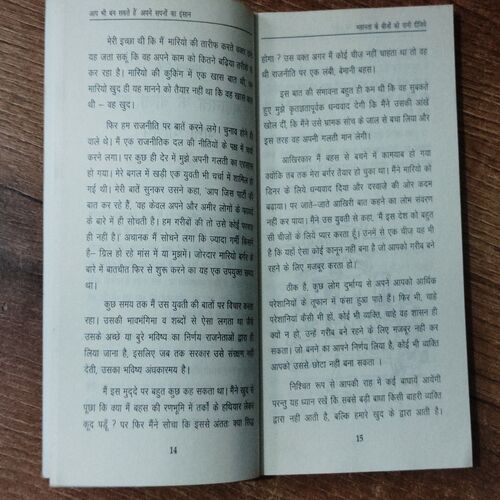 आप भी बन सकते हैं अपने सपनों का इंसान
मेरी इच्छा थी कि मैं मारियो की तारीफ करते वक्त
यह जता सकूं कि वह अपने काम को कितने बढ़िया तरीके
कर रहा है। मारियो की कुकिंग में एक खास बात थी,
मारियो खुद ही यह मानने को तैयार नहीं था कि वह खास
थी – वह खुद।
फिर हम राजनीति पर बातें करने लगे। चुनाव होने ही
वाले थे। मैं एक राजनीतिक दल की नीतियों के पक्ष में
करने लगा। पर कुछ ही देर में मुझे अपनी गलती का एहसास
हो गया। मेरे बगल में खड़ी एक युवती भी चर्चा में शामिल हो
गई थी। मेरी बातें सुनकर उसने कहा, 'आप जिस पार्टी की
बात कर रहे हैं, 'वह केवल अपने और अमीर लोगों के
के बारे में ही सोचती है। हम गरीबों की तो उसे कोई परवाह
ही नहीं है।' अचानक मैं सोचने लगा कि ज्यादा गर्मी किसमें
है– ग्रिल हो रहे मांस में या मुझमें। जोरदार मारियो बर्गर के
बारे में बातचीत फिर से शुरू करने का यह एक उपयुक्त समय
था।
कुछ समय तक मैं उस युवती की बातों पर विचार करता
रहा। उसकी भावभंगिमा व शब्दों से ऐसा लगता था जैसे
उसके अच्छे या बुरे भविष्य का निर्णय राजनेताओं द्वारा ही
लिया जाना है, इसलिए जब तक सरकार उसे संरक्षण नहीं
देती, उसका भविष्य अंधकारमय है।
मैं इस मुद्दे पर बहुत कुछ कह सकता था। मैंने खुद से
पूछा कि क्या मैं बहस की रणभूमि में तर्कों के हथियार लेकर
कूद पड़ूँ ? पर फिर मैंने सोचा कि इससे अंततः क्या सिद्ध
14
महानता के बीजों को पानी दीजिये
होगा ? उस वक्त अगर मैं कोई चीज नहीं चाहता था तो वह
थी राजनीति पर एक लंबी, बेमानी बहस।
इस बात की संभावना बहुत ही कम थी कि वह सुबकते
हुए मुझे कृतज्ञतापूर्वक धन्यवाद देगी कि मैंने उसकी आंखें
खोल दीं, कि मैंने उसे भ्रामक सोच के जाल से बचा लिया और
इस तरह वह अपनी गलती मान लेगी।
आखिरकार मैं बहस से बचने में कामयाब हो गया
क्योंकि तब तक मेरा बर्गर तैयार हो चुका था। मैंने मारियो को
डिनर के लिये धन्यवाद दिया और दरवाजे की ओर कदम
बढ़ाया। पर जाते–जाते आखिरी बात कहने का लोभ संवरण
नहीं कर पाया। मैंने उस युवती से कहा, 'मैं इस देश को बहुत
सी चीजों के लिये प्यार करता हूँ। उनमें से एक चीज यह भी
है कि यहाँ ऐसा कोई कानून नहीं बना है जो आपको गरीब बने
रहने के लिए मजबूर करता हो।'
ठीक है, कुछ लोग दुर्भाग्य से अपने आपको आर्थिक
परेशानियों के तूफान में फंसा हुआ पाते हैं। फिर भी, चाहे
परेशानियां कैसी भी हों, कोई भी व्यक्ति, चाहे वह शासन ही
क्यों न हो, उन्हें गरीब बने रहने के लिए मजबूर नहीं कर
सकता। जो बनने का आपने निर्णय लिया है, कोई भी व्यक्ति
आपको उससे छोटा नहीं बना सकता ।
निश्चित रूप से आपकी राह में कई बाधायें आयेंगी
परन्तु यह ध्यान रखें कि सबसे बड़ी बाधा किसी बाहरी व्यक्ति
द्वारा नहीं आती है, बल्कि हमारे खुद के द्वारा आती है।
15